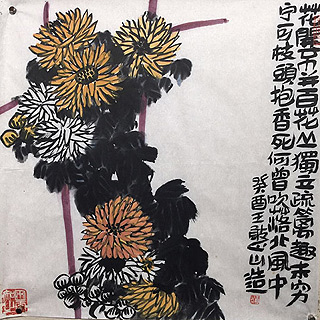 花開不并百花丛獨立疏籬趣未穷
宁可枝頭抱香死何曾吹落北風中
癸酉王憨山造